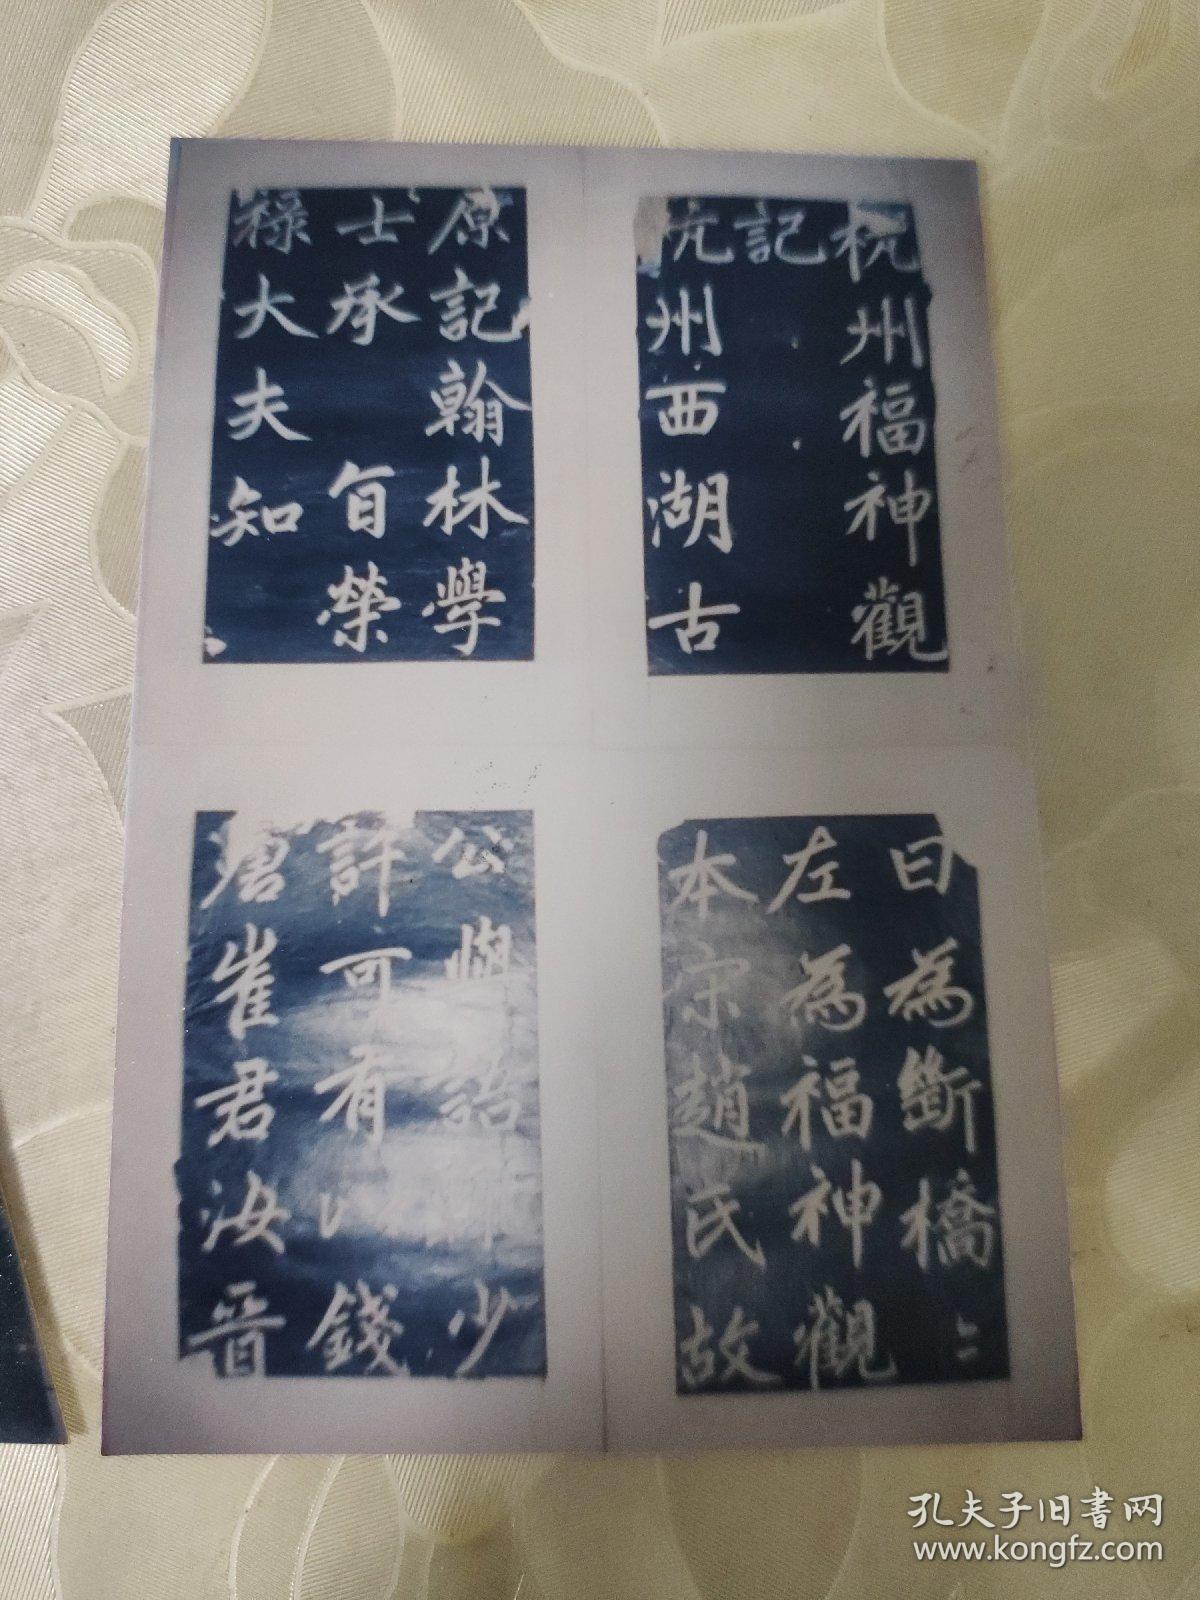 杭州福神觀
記
杭州西湖古
原記翰林學
士承 旨榮
祿大夫知
曰為斷橋
左為福神觀
本宋趙氏故
公嶼語師少
許可有以錢
唐崔君汝晉
孔夫子旧書网
www.kongfz.com